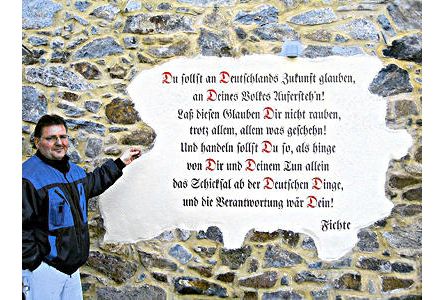 Du sollst an Deutschlands Zukunft glauben,
an Deines Volkes Aufersteh'n!
Laß diesen Glauben Dir nicht rauben,
trotz allem, allem was geschehn!
Und handeln sollst Du so, als hinge
von Dir und Deinem Tun allein
das Schicksal ab der Deutschen Dinge,
und die Verantwortung wär Dein!
Fichte